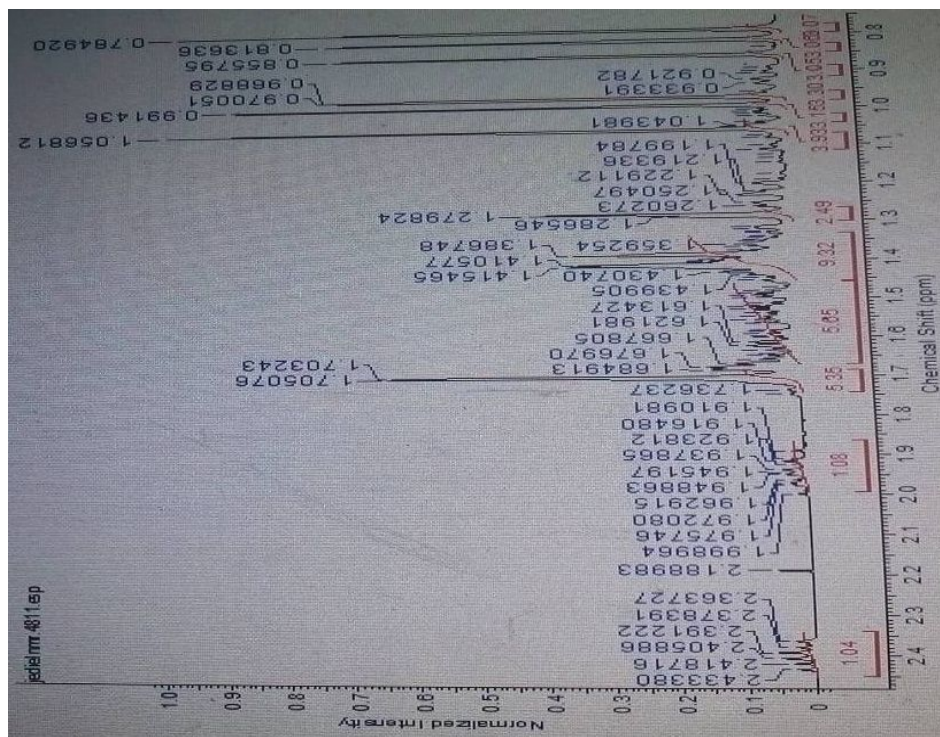 jediel nmr.4811.esp
Normalized Intensity
1.0
0.9
0.8
0.7
0.6
0.5
0.4
0.3
0.2
0.1
0
2.433380
2.418716
2.405886
2.391222
2.378391
2.363727
2.188983
1.998964
1.975746
1.972080
1.962915
1.948863
1.945197
1.937865
1.923812
1.916480
1.910981
1.736237
1.705076
1.703243
1.684913
1.676970
1.667805
1.621981
1.613427
1.439905
1.430740
1.415465
1.410577
1.386748
1.359254
1.286546
1.279824
1.260273
1.250497
1.229112
1.219336
1.199784
1.056812
1.043981
0.991436
0.970051
0.968829
0.933391
0.921782
0.855795
0.813636
0.784920
1.04
1.08
5.35
5.85
9.32
2.49
3.933.163.303.05
2.4
2.3
2.2
2.1
2.0
1.9
1.8
1.7
1.6
1.5
1.4
1.3
1.2
1.1
1.0
0.9
0.8
Chemical Shift (ppm)